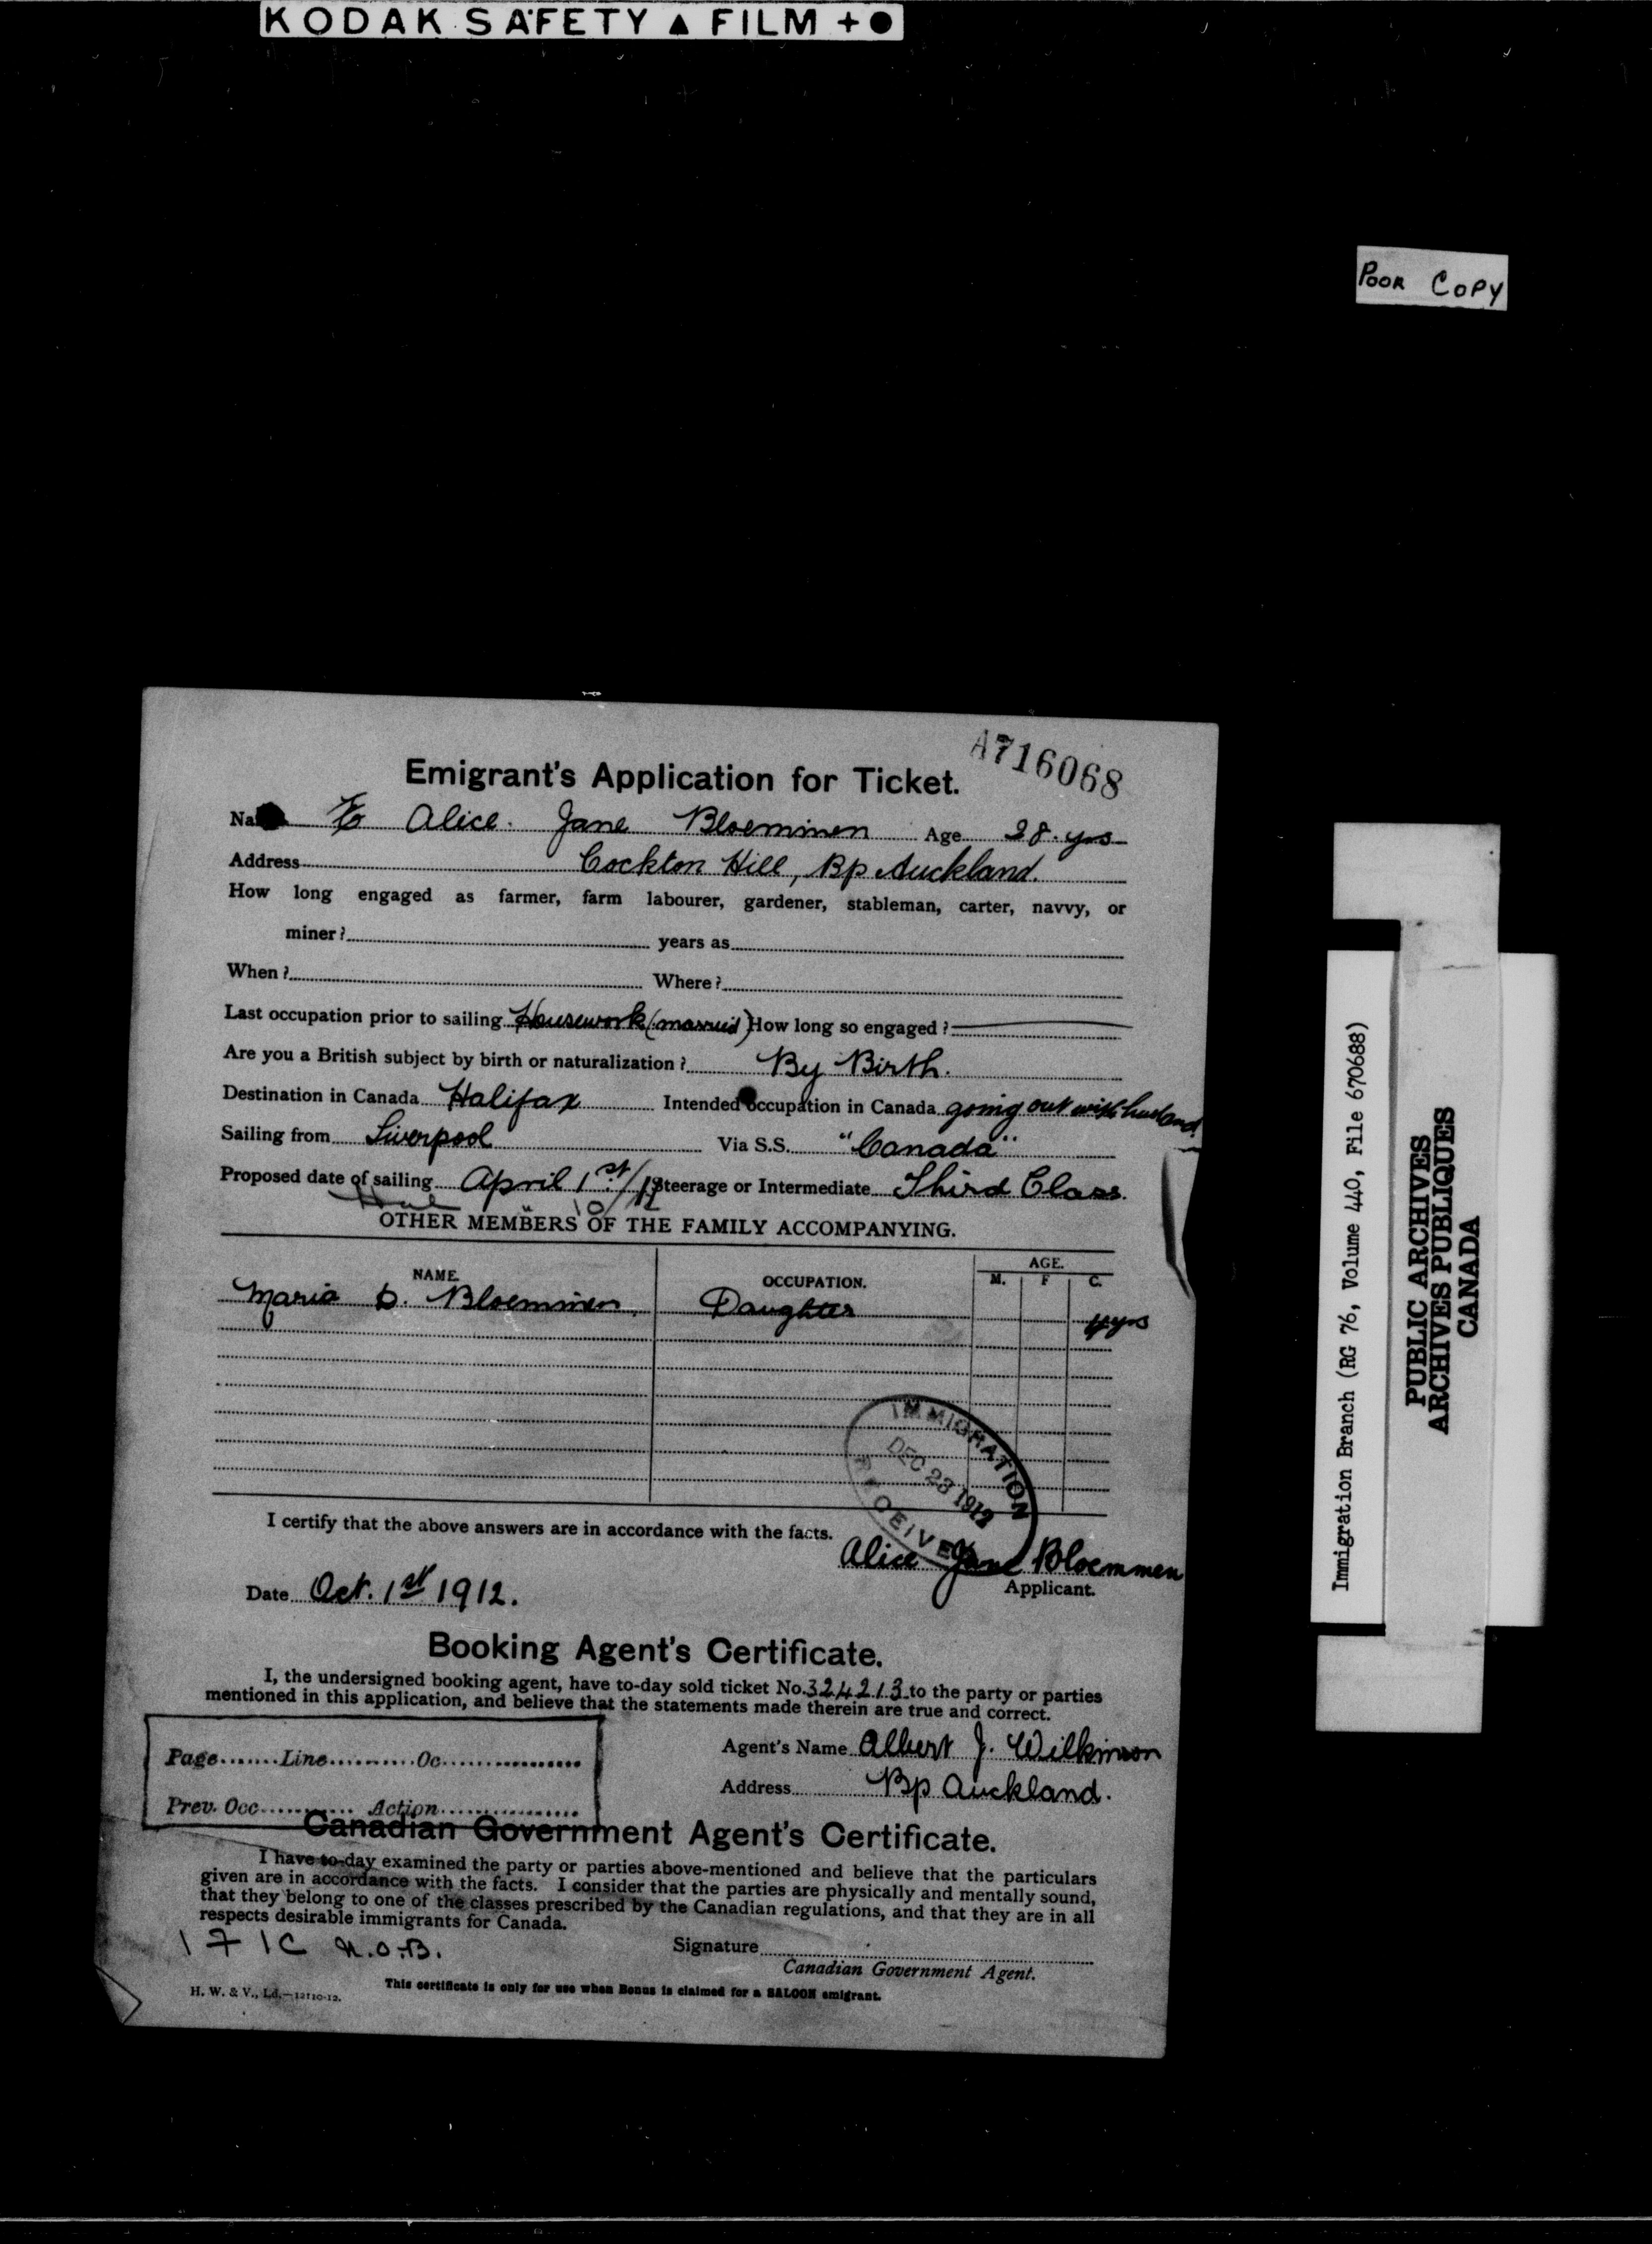 KODAK SAFETY ▲ FILM + ●
POOR COPY
A716068
Emigrant's Application for Ticket.
Alice Jane Bloemmen Age 28 yrs
Address Cockton Hill, Bp Auckland.
How long engaged as farmer, farm labourer, gardener, stableman, carter, navvy, or
miner? years as
When? Where?
Last occupation prior to sailing Housework (married) How long so engaged?
Are you a British subject by birth or naturalization? By Birth.
Destination in Canada Halifax Intended occupation in Canada going out with husband.
Sailing from Liverpool Via S.S. "Canada"
Proposed date of sailing April 1st/12 Steerage or Intermediate Third Class.
10/12
OTHER MEMBERS OF THE FAMILY ACCOMPANYING.
NAME. OCCUPATION. AGE.
M. F C.
Maria D. Bloemmen Daughter 4 yrs
IMMIGRATION
DEC 23 1912
RECEIVED
I certify that the above answers are in accordance with the facts.
Alice Jane Bloemmen
Applicant.
Date Oct. 1st 1912.
Booking Agent's Certificate.
I, the undersigned booking agent, have to-day sold ticket No. 324213 to the party or parties
mentioned in this application, and believe that the statements made therein are true and correct.
Agent's Name Albert J. Wilkinson
Address Bp Auckland.
Page.......Line..........Oc................
Prev. Occ........... Action................
Canadian Government Agent's Certificate.
I have to-day examined the party or parties above-mentioned and believe that the particulars
given are in accordance with the facts. I consider that the parties are physically and mentally sound,
that they belong to one of the classes prescribed by the Canadian regulations, and that they are in all
respects desirable immigrants for Canada.
1 7 1C N.O.B.
Signature
Canadian Government Agent.
This certificate is only for use when Bonus is claimed for a SALOON emigrant.
H. W. & V., Ld.—12110-12.
Immigration Branch (RG 76, Volume 440, File 670688)
PUBLIC ARCHIVES
ARCHIVES PUBLIQUES
CANADA